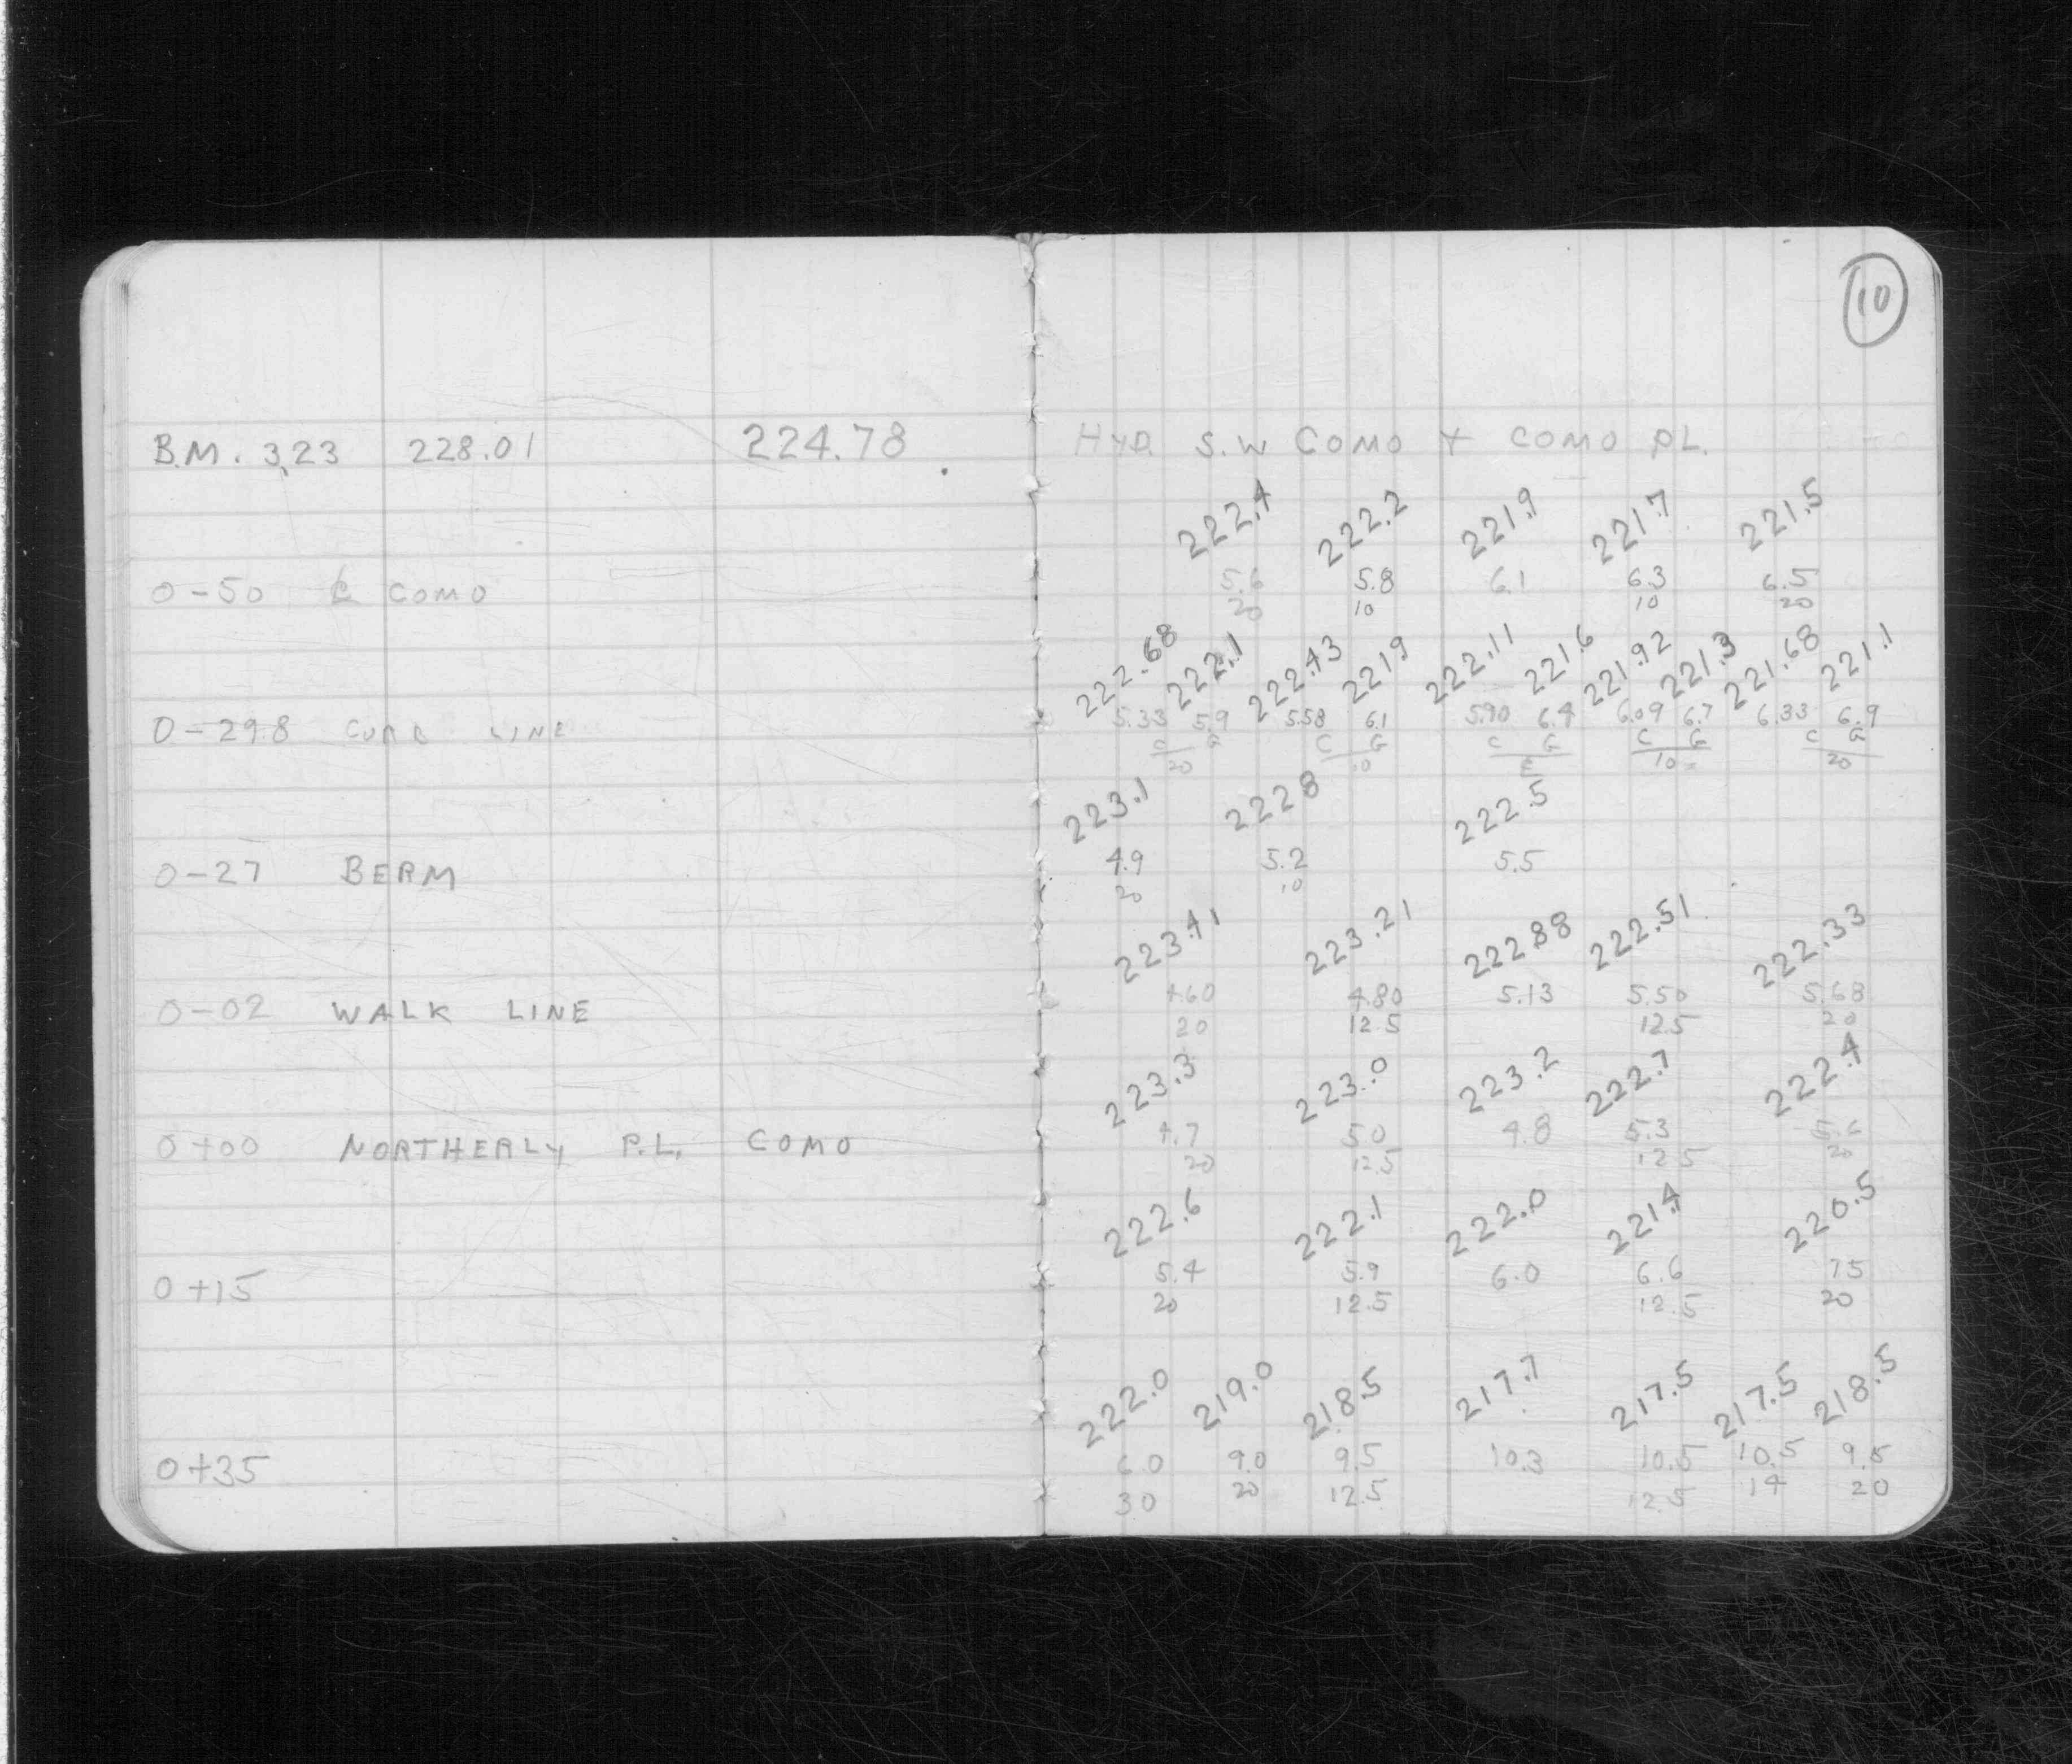 10
B.M. 3.23 228.01 224.78 HYD. S.W COMO & COMO PL.
222.4 222.2 221.9 221.7 221.5
0-50 ℄ COMO 5.6 5.8 6.1 6.3 6.5
20 10 10 20
222.68 222.1 222.43 221.9 222.11 221.6 221.92 221.3 221.68 221.1
0-29.8 CURB LINE 5.33 5.9 5.58 6.1 5.90 6.4 6.09 6.7 6.33 6.9
C G C G C G C G C G
20 10 ℄ 10 20
223.1 222.8 222.5
0-27 BERM 4.9 5.2 5.5
20 10
223.41 223.21 222.88 222.51 222.33
0-02 WALK LINE 4.60 4.80 5.13 5.50 5.68
20 12.5 12.5 20
223.3 223.0 223.2 222.7 222.4
0+00 NORTHERLY P.L. COMO 4.7 5.0 4.8 5.3 5.6
20 12.5 12.5 20
222.6 222.1 222.0 221.4 220.5
0+15 5.4 5.9 6.0 6.6 7.5
20 12.5 12.5 20
222.0 219.0 218.5 217.7 217.5 217.5 218.5
0+35 6.0 9.0 9.5 10.3 10.5 10.5 9.5
30 20 12.5 12.5 14 20